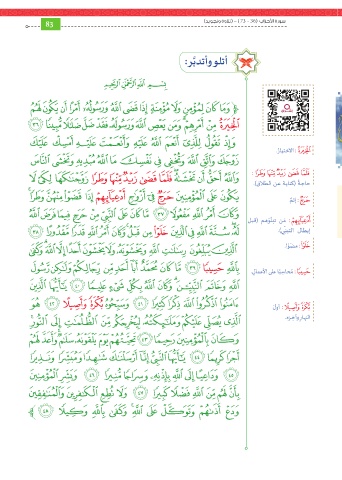 سورة الأحزاب (36 - 73) - (تلاوة وتجويد)
83
أتلو وأتدبّر:
بِسْمِ اللَّهِ الرَّحْمَنِ الرَّحِيمِ
﴿ وَمَا كَانَ لِمُؤْمِنٍ وَلَا مُؤْمِنَةٍ إِذَا قَضَى اللَّهُ وَرَسُولُهُ أَمْرًا أَن يَكُونَ لَهُمُ
الْخِيَرَةُ مِنْ أَمْرِهِمْ وَمَن يَعْصِ اللَّهَ وَرَسُولَهُ فَقَدْ ضَلَّ ضَلَالًا مُّبِينًا ﴿٣٦﴾
وَإِذْ تَقُولُ لِلَّذِي أَنْعَمَ اللَّهُ عَلَيْهِ وَأَنْعَمْتَ عَلَيْهِ أَمْسِكْ عَلَيْكَ
زَوْجَكَ وَاتَّقِ اللَّهَ وَتُخْفِي فِي نَفْسِكَ مَا اللَّهُ مُبْدِيهِ وَتَخْشَى النَّاسَ
وَاللَّهُ أَحَقُّ أَن تَخْشَاهُ فَلَمَّا قَضَى زَيْدٌ مِّنْهَا وَطَرًا زَوَّجْنَاكَهَا لِكَيْ لَا
يَكُونَ عَلَى الْمُؤْمِنِينَ حَرَجٌ فِي أَزْوَاجِ أَدْعِيَائِهِمْ إِذَا قَضَوْا مِنْهُنَّ وَطَرًا
وَكَانَ أَمْرُ اللَّهِ مَفْعُولًا ﴿٣٧﴾ مَّا كَانَ عَلَى النَّبِيِّ مِنْ حَرَجٍ فِيمَا فَرَضَ اللَّهُ
لَهُ سُنَّةَ اللَّهِ فِي الَّذِينَ خَلَوْا مِن قَبْلُ وَكَانَ أَمْرُ اللَّهِ قَدَرًا مَّقْدُورًا ﴿٣٨﴾
الَّذِينَ يُبَلِّغُونَ رِسَالَاتِ اللَّهِ وَيَخْشَوْنَهُ وَلَا يَخْشَوْنَ أَحَدًا إِلَّا اللَّهَ وَكَفَى
بِاللَّهِ حَسِيبًا ﴿٣٩﴾ مَّا كَانَ مُحَمَّدٌ أَبَا أَحَدٍ مِّن رِّجَالِكُمْ وَلَٰكِن رَّسُولَ
اللَّهِ وَخَاتَمَ النَّبِيِّينَ وَكَانَ اللَّهُ بِكُلِّ شَيْءٍ عَلِيمًا ﴿٤٠﴾ يَا أَيُّهَا الَّذِينَ
آمَنُوا اذْكُرُوا اللَّهَ ذِكْرًا كَثِيرًا ﴿٤١﴾ وَسَبِّحُوهُ بُكْرَةً وَأَصِيلًا ﴿٤٢﴾ هُوَ
الَّذِي يُصَلِّي عَلَيْكُمْ وَمَلَائِكَتُهُ لِيُخْرِجَكُم مِّنَ الظُّلُمَاتِ إِلَى النُّورِ
وَكَانَ بِالْمُؤْمِنِينَ رَحِيمًا ﴿٤٣﴾ تَحِيَّتُهُمْ يَوْمَ يَلْقَوْنَهُ سَلَامٌ وَأَعَدَّ لَهُمْ
أَجْرًا كَرِيمًا ﴿٤٤﴾ يَا أَيُّهَا النَّبِيُّ إِنَّا أَرْسَلْنَاكَ شَاهِدًا وَمُبَشِّرًا وَنَذِيرًا
﴿٤٥﴾ وَدَاعِيًا إِلَى اللَّهِ بِإِذْنِهِ وَسِرَاجًا مُّنِيرًا ﴿٤٦﴾ وَبَشِّرِ الْمُؤْمِنِينَ
بِأَنَّ لَهُم مِّنَ اللَّهِ فَضْلًا كَبِيرًا ﴿٤٧﴾ وَلَا تُطِعِ الْكَافِرِينَ وَالْمُنَافِقِينَ
وَدَعْ أَذَاهُمْ وَتَوَكَّلْ عَلَى اللَّهِ وَكَفَى بِاللَّهِ وَكِيلًا ﴿٤٨﴾ ﴾
الْخِيَرَةُ: الاختيار.
فَلَمَّا قَضَى زَيْدٌ مِّنْهَا وَطَرًا:
حاجة (كناية عن الطلاق).
حَرَجٌ: إثم.
أَدْعِيَائِهِمْ: من تبنّوهم (قبل
إبطال التبنّي).
خَلَوْا: مضوا.
حَسِيبًا: محاسبًا على الأعمال.
بُكْرَةً وَأَصِيلًا: أول
النهار وآخره.